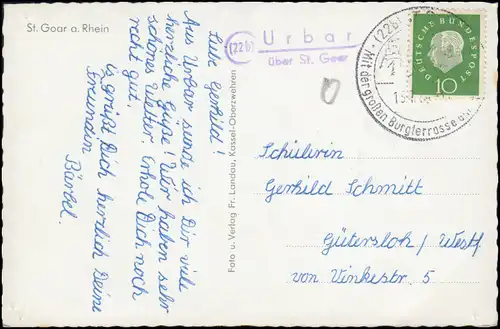 St. Goar a. Rhein
Liebe Gerhild!
Aus Urbar sende ich Dir viele
herzliche Grüße! Wir haben sehr
schönes Wetter. Erhole Dich noch
recht gut.
Es grüßt Dich herzlich Deine
Freundin
Bärbel.
Foto u. Verlag Fr. Landau, Kassel-Oberzwehren
(22b) Urbar
über St. Goar
(22b) ST. GOAR
Mit der großen Burgterrasse
DEUTSCHE BUNDESPOST
10
Schülerin
Gerhild Schmitt
Gütersloh / Westf.
von Vinkestr. 5